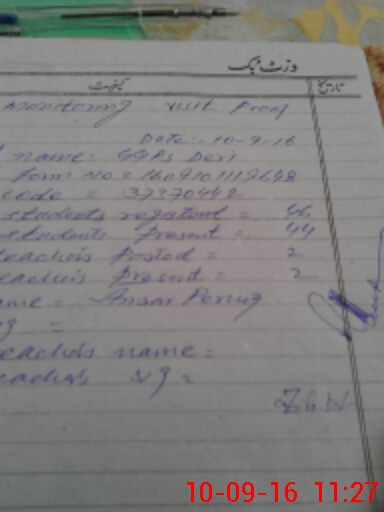 وزٹ بک
کیفیت تاریخ
Monitoring visit Proof
Date:- 10-9-16
name: GGPS Deri
Form No = 16091011197648
code = 37370442
students registerd = 46
students present = 44
teachers posted = 2
eachers present = 2
ame = Ansar Perveg
g =
eacher's name =
eacher's sig =
10-09-16 11:27